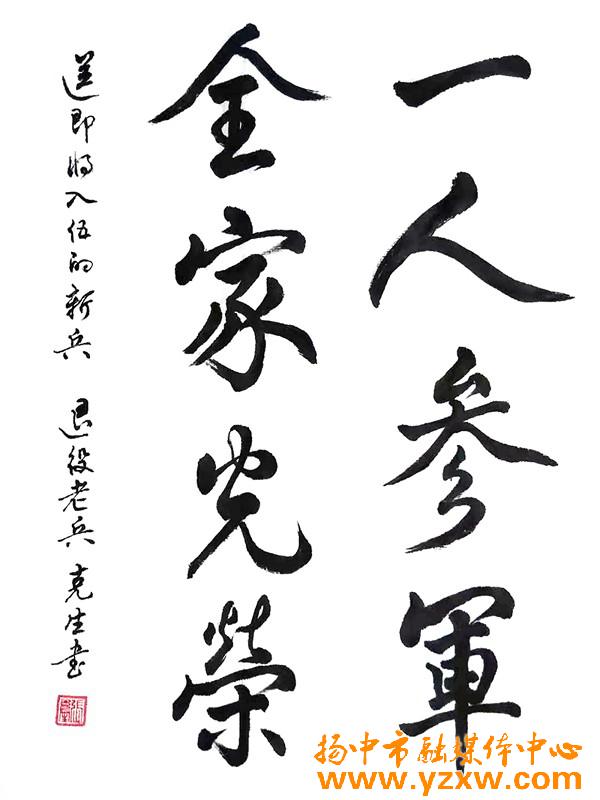 一人参軍
全家光榮
送即将入伍的新兵 退役老兵 克生书
扬中市融媒体中心
www.yzxw.com